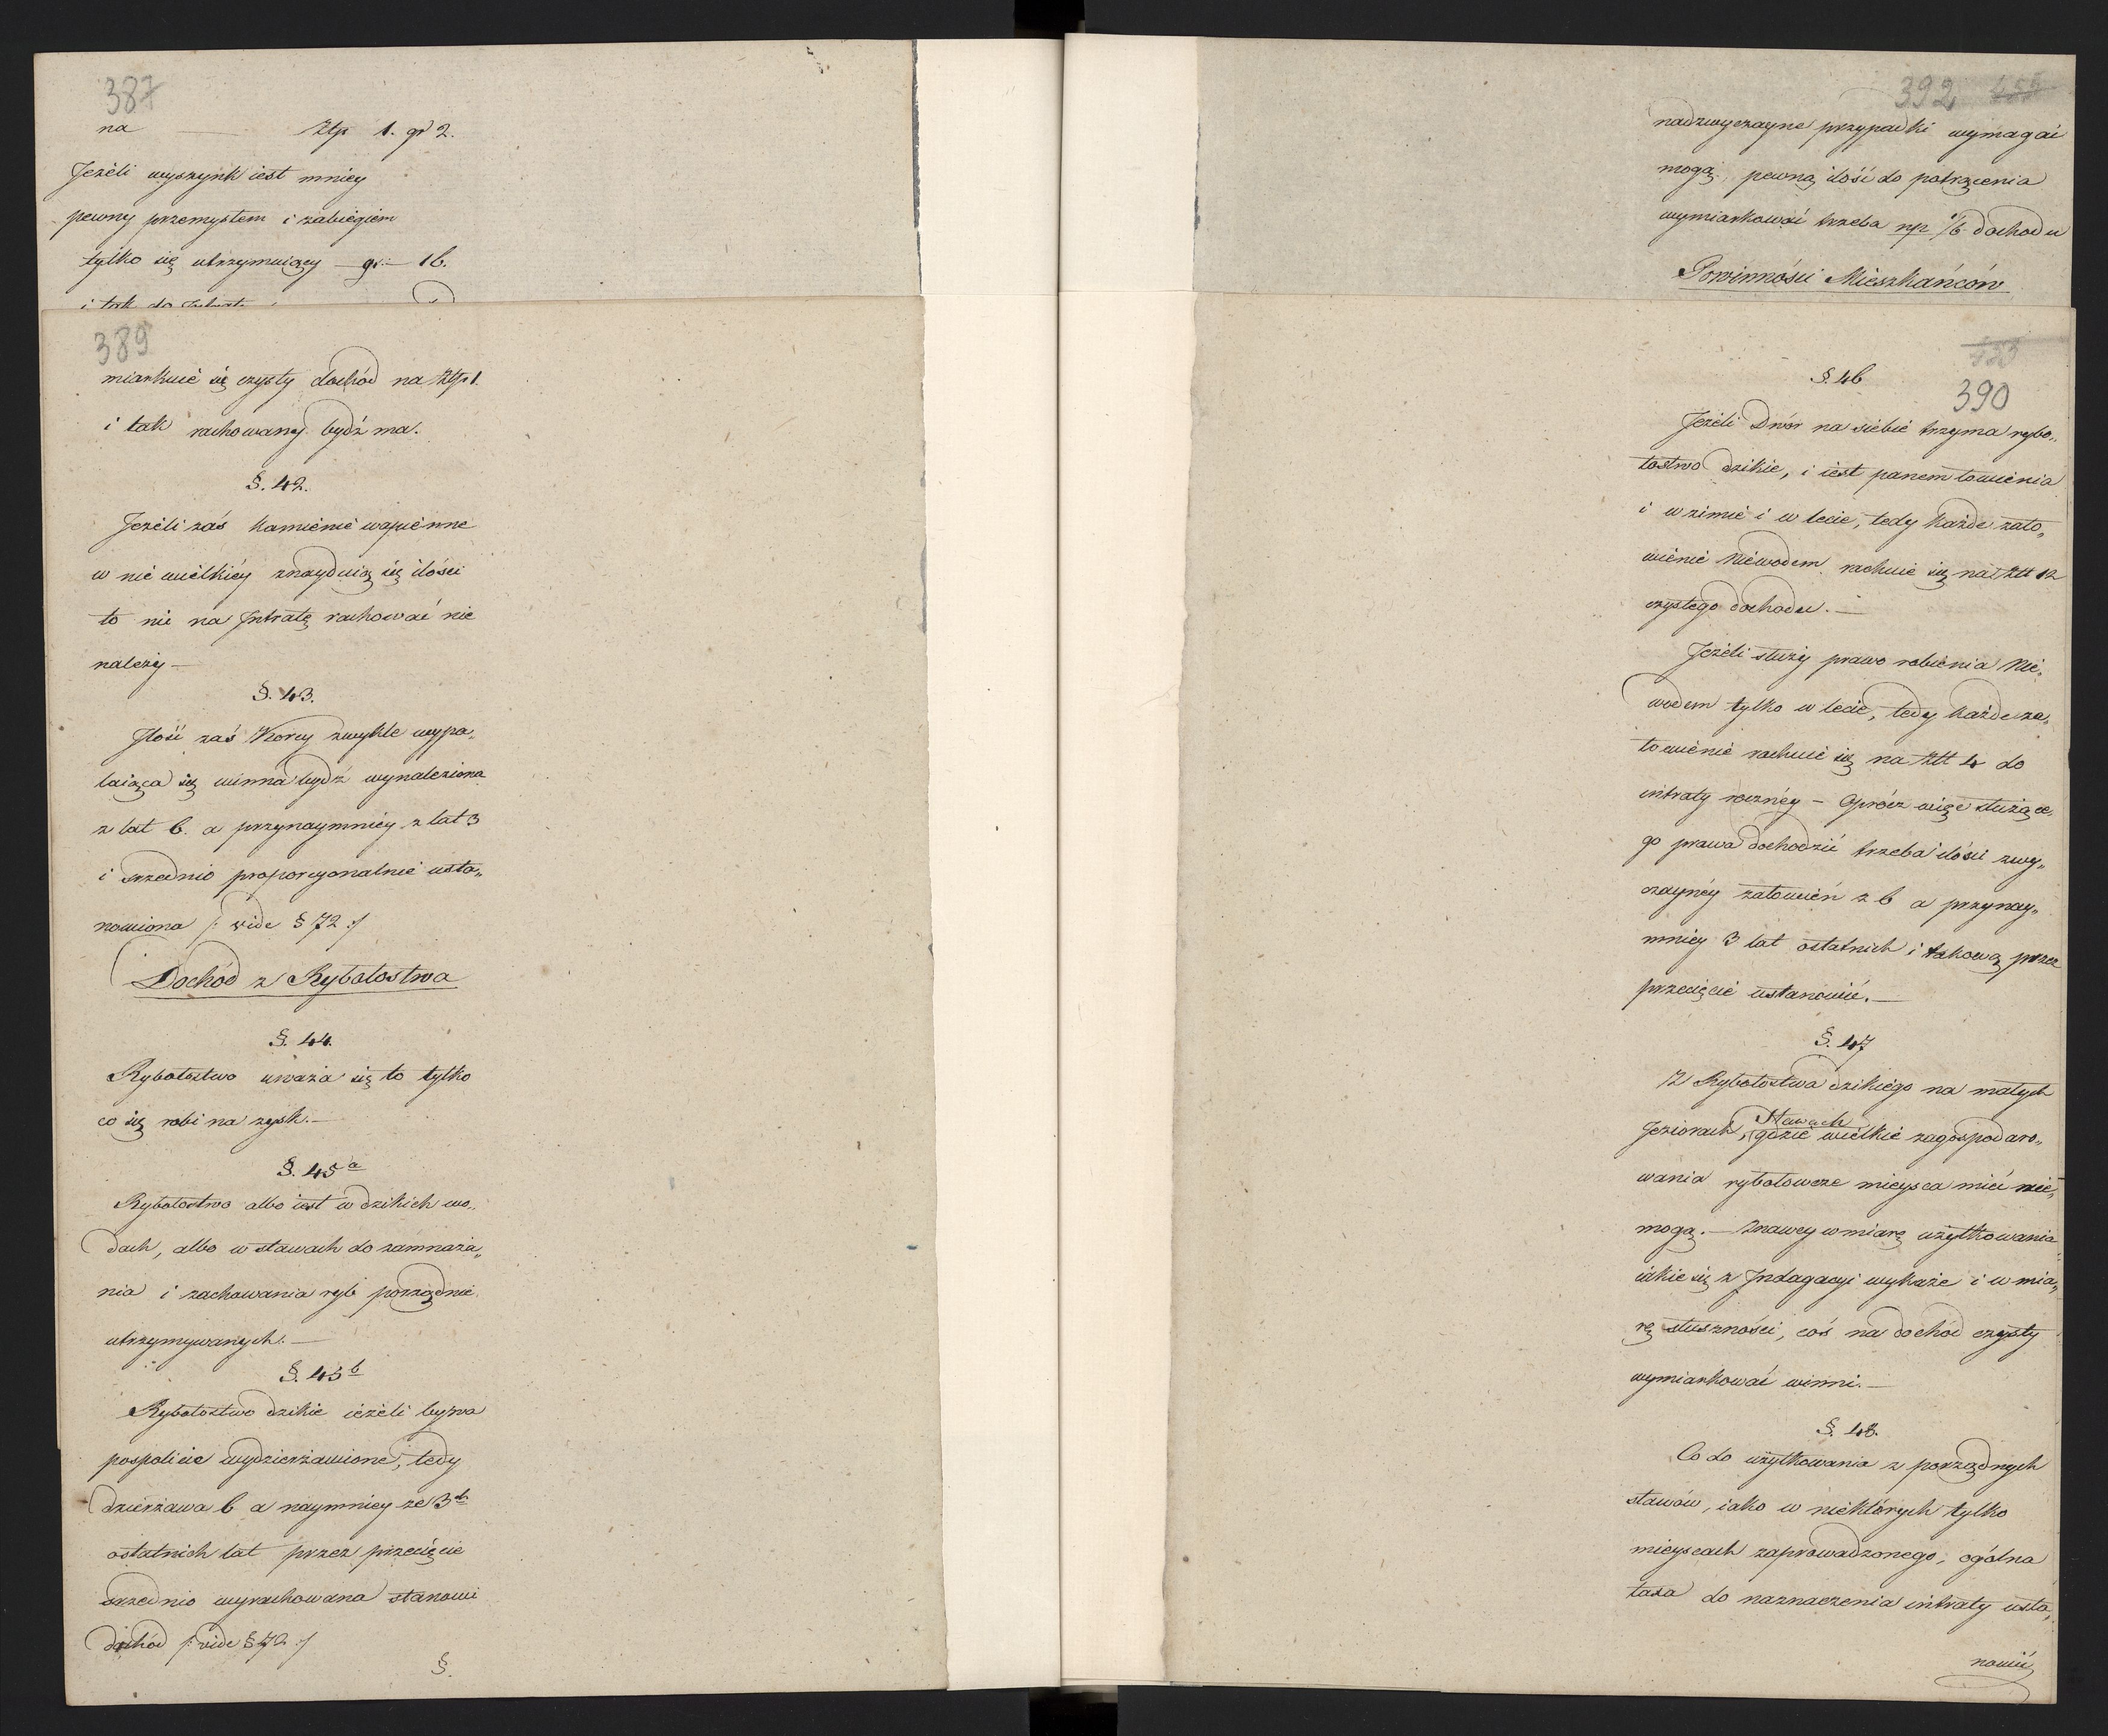 387
na — Ztp 1. gr 2.
Jeżeli wyszynk iest mniey
pewny przemysłem i zabiegiem
tylko się utrzymuiący — gr: — 16.
i tak do
389
miarkuie się czysty dochód na Ztp 1.
i tak rachowany bydź ma.
§. 42.
Jeżeli zaś kamienie wapienne
w nie wielkiéy znayduią się ilości
to nic na Jntratę rachować nie
należy —
§. 43.
Jlość zaś Korcy zwykle wypa„
laiąca się winna bydź wynaleziona
z lat 6. a przynaymniéy z lat 3
i srzednio proporcyonalnie usta„
nowiona /: vide § 72 :/
Dochód z Rybołostwa
§. 44.
Rybołostwo uważa się to tylko
co się robi na zysk. —
§. 45a
Rybołostwo albo iest w dzikich wo„
dach, albo w stawach do zamnaża„
nia i zachowania ryb porządnie
utrzymywanych. —
§. 45b
Rybołostwo dzikie ieżeli bywa
pospolicie wydzierżawione, tedy
dzierżawa 6 a naymniey ze 3ch
ostatnich lat przez przecięcie
srzednio wyrachowana stanowi
dochód /: vide § 72 :/
§.
392
nadzwyczayne przypadki wymagać
mogą, pewną ilość do potrącenia
wymiarkować trzeba np 1/6 dochodu
Powinności Mieszkańców
§. 46
390
Jeżeli Dwór na siebie trzyma rybo„
łostwo dzikie, i iest panem łowienia
i w zimie i w lecie, tedy każde zało„
wienie Niewodem rachuie się na Ztt 12
czystego dochodu. —
Jeżeli służy prawo robienia Nie„
wodem tylko w lecie, tedy każde za„
łowienie rachuie się na Ztt 4 do
intraty roczney — Oprócz więc służące„
go prawa dochodzić trzeba ilości zwy„
czaynéy załowień z 6 a przynay„
mniey 3 lat ostatnich i takową przez
przecięcie ustanowić. —
§. 47
Z Rybołostwa dzikiego na małych
Stawach
Jeziorach, gdzie wielkie zagospodaro„
wania rybołowcze mieysca mieć nie„
mogą. — Znawcy w miarę użytkowania
iakie się z Jndagacyi wykaże i w mia„
rę słuszności, coś na dochód czysty
wymiarkować winni. —
§. 48.
Co do użytkowania z porządnych
stawów, iako w niektórych tylko
mieyscach zaprowadzonego, ogólna
taxa do naznaczenia intraty usta„
nowić